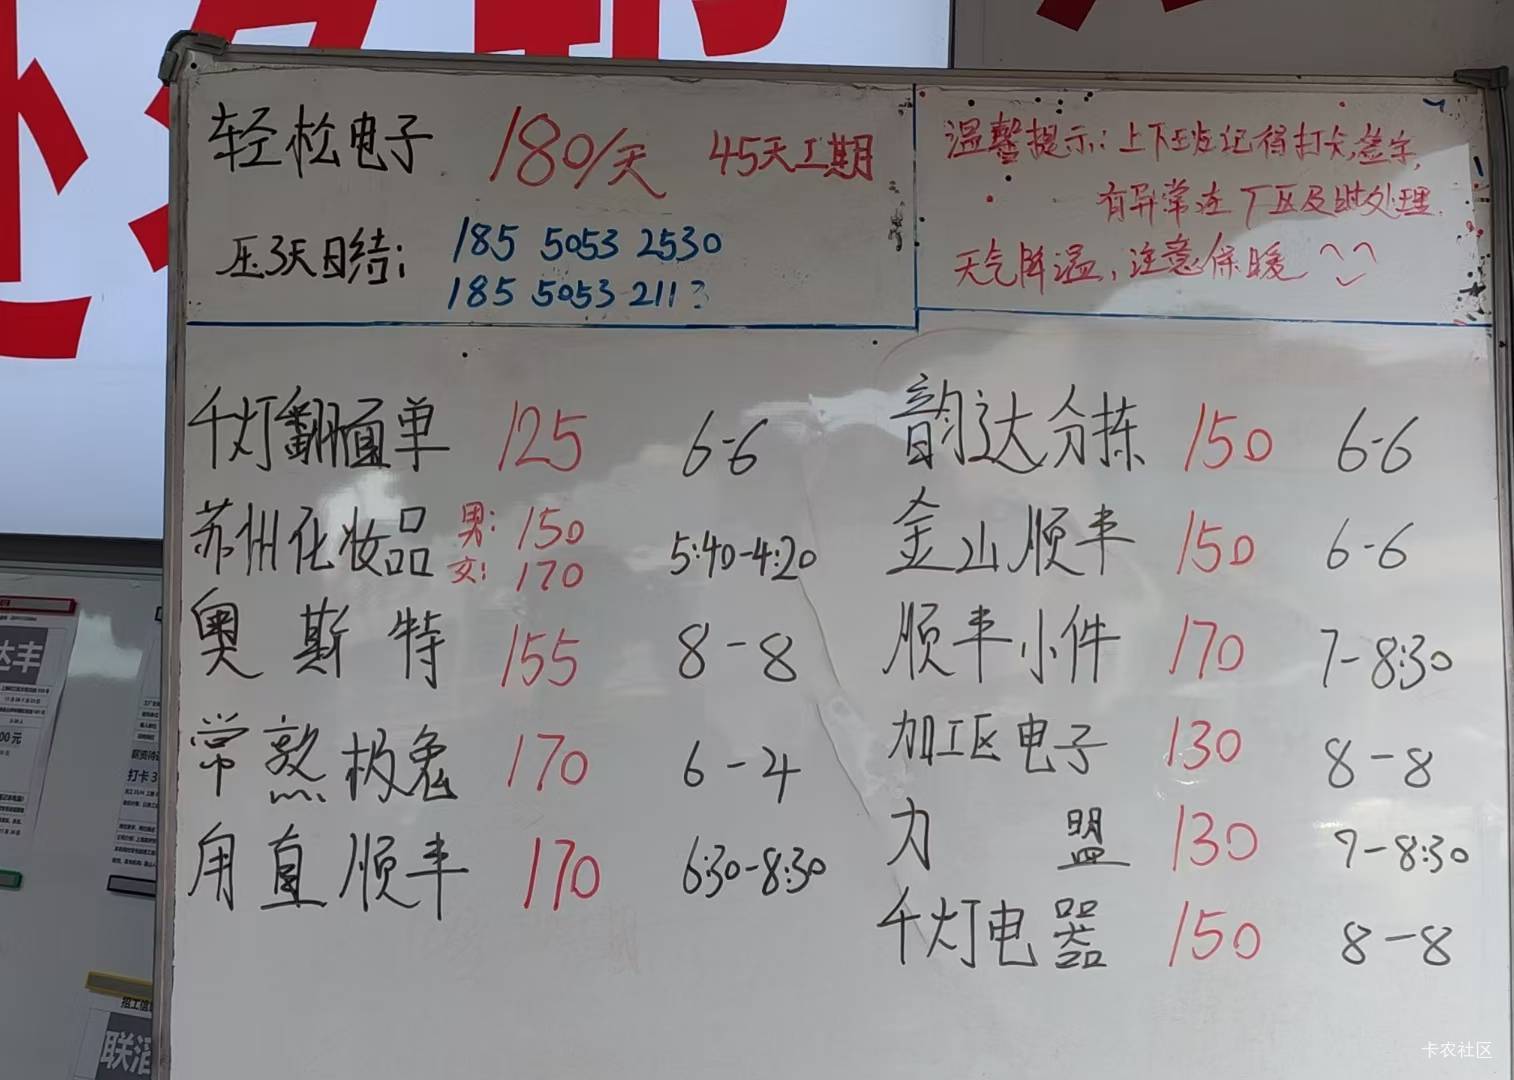 轻松电子 180/天 45天工期
压3天日结: 185 5053 2530
185 5053 211
温馨提示: 上下班记得打卡,签字,
有异常连厂区及时处理.
天气降温, 注意保暖
千灯翻面单 125 6-6
苏州化妆品 男: 150 女: 170 5:40-4:20
奥斯特 155 8-8
常熟极兔 170 6-4
甪直顺丰 170 6:30-8:30
韵达分拣 150 6-6
金山顺丰 150 6-6
顺丰小件 170 7-8:30
加工区电子 130 8-8
力盟 130 7-8:30
千灯电器 150 8-8
达丰
00元
打卡3
招工信
联滔
卡农社区